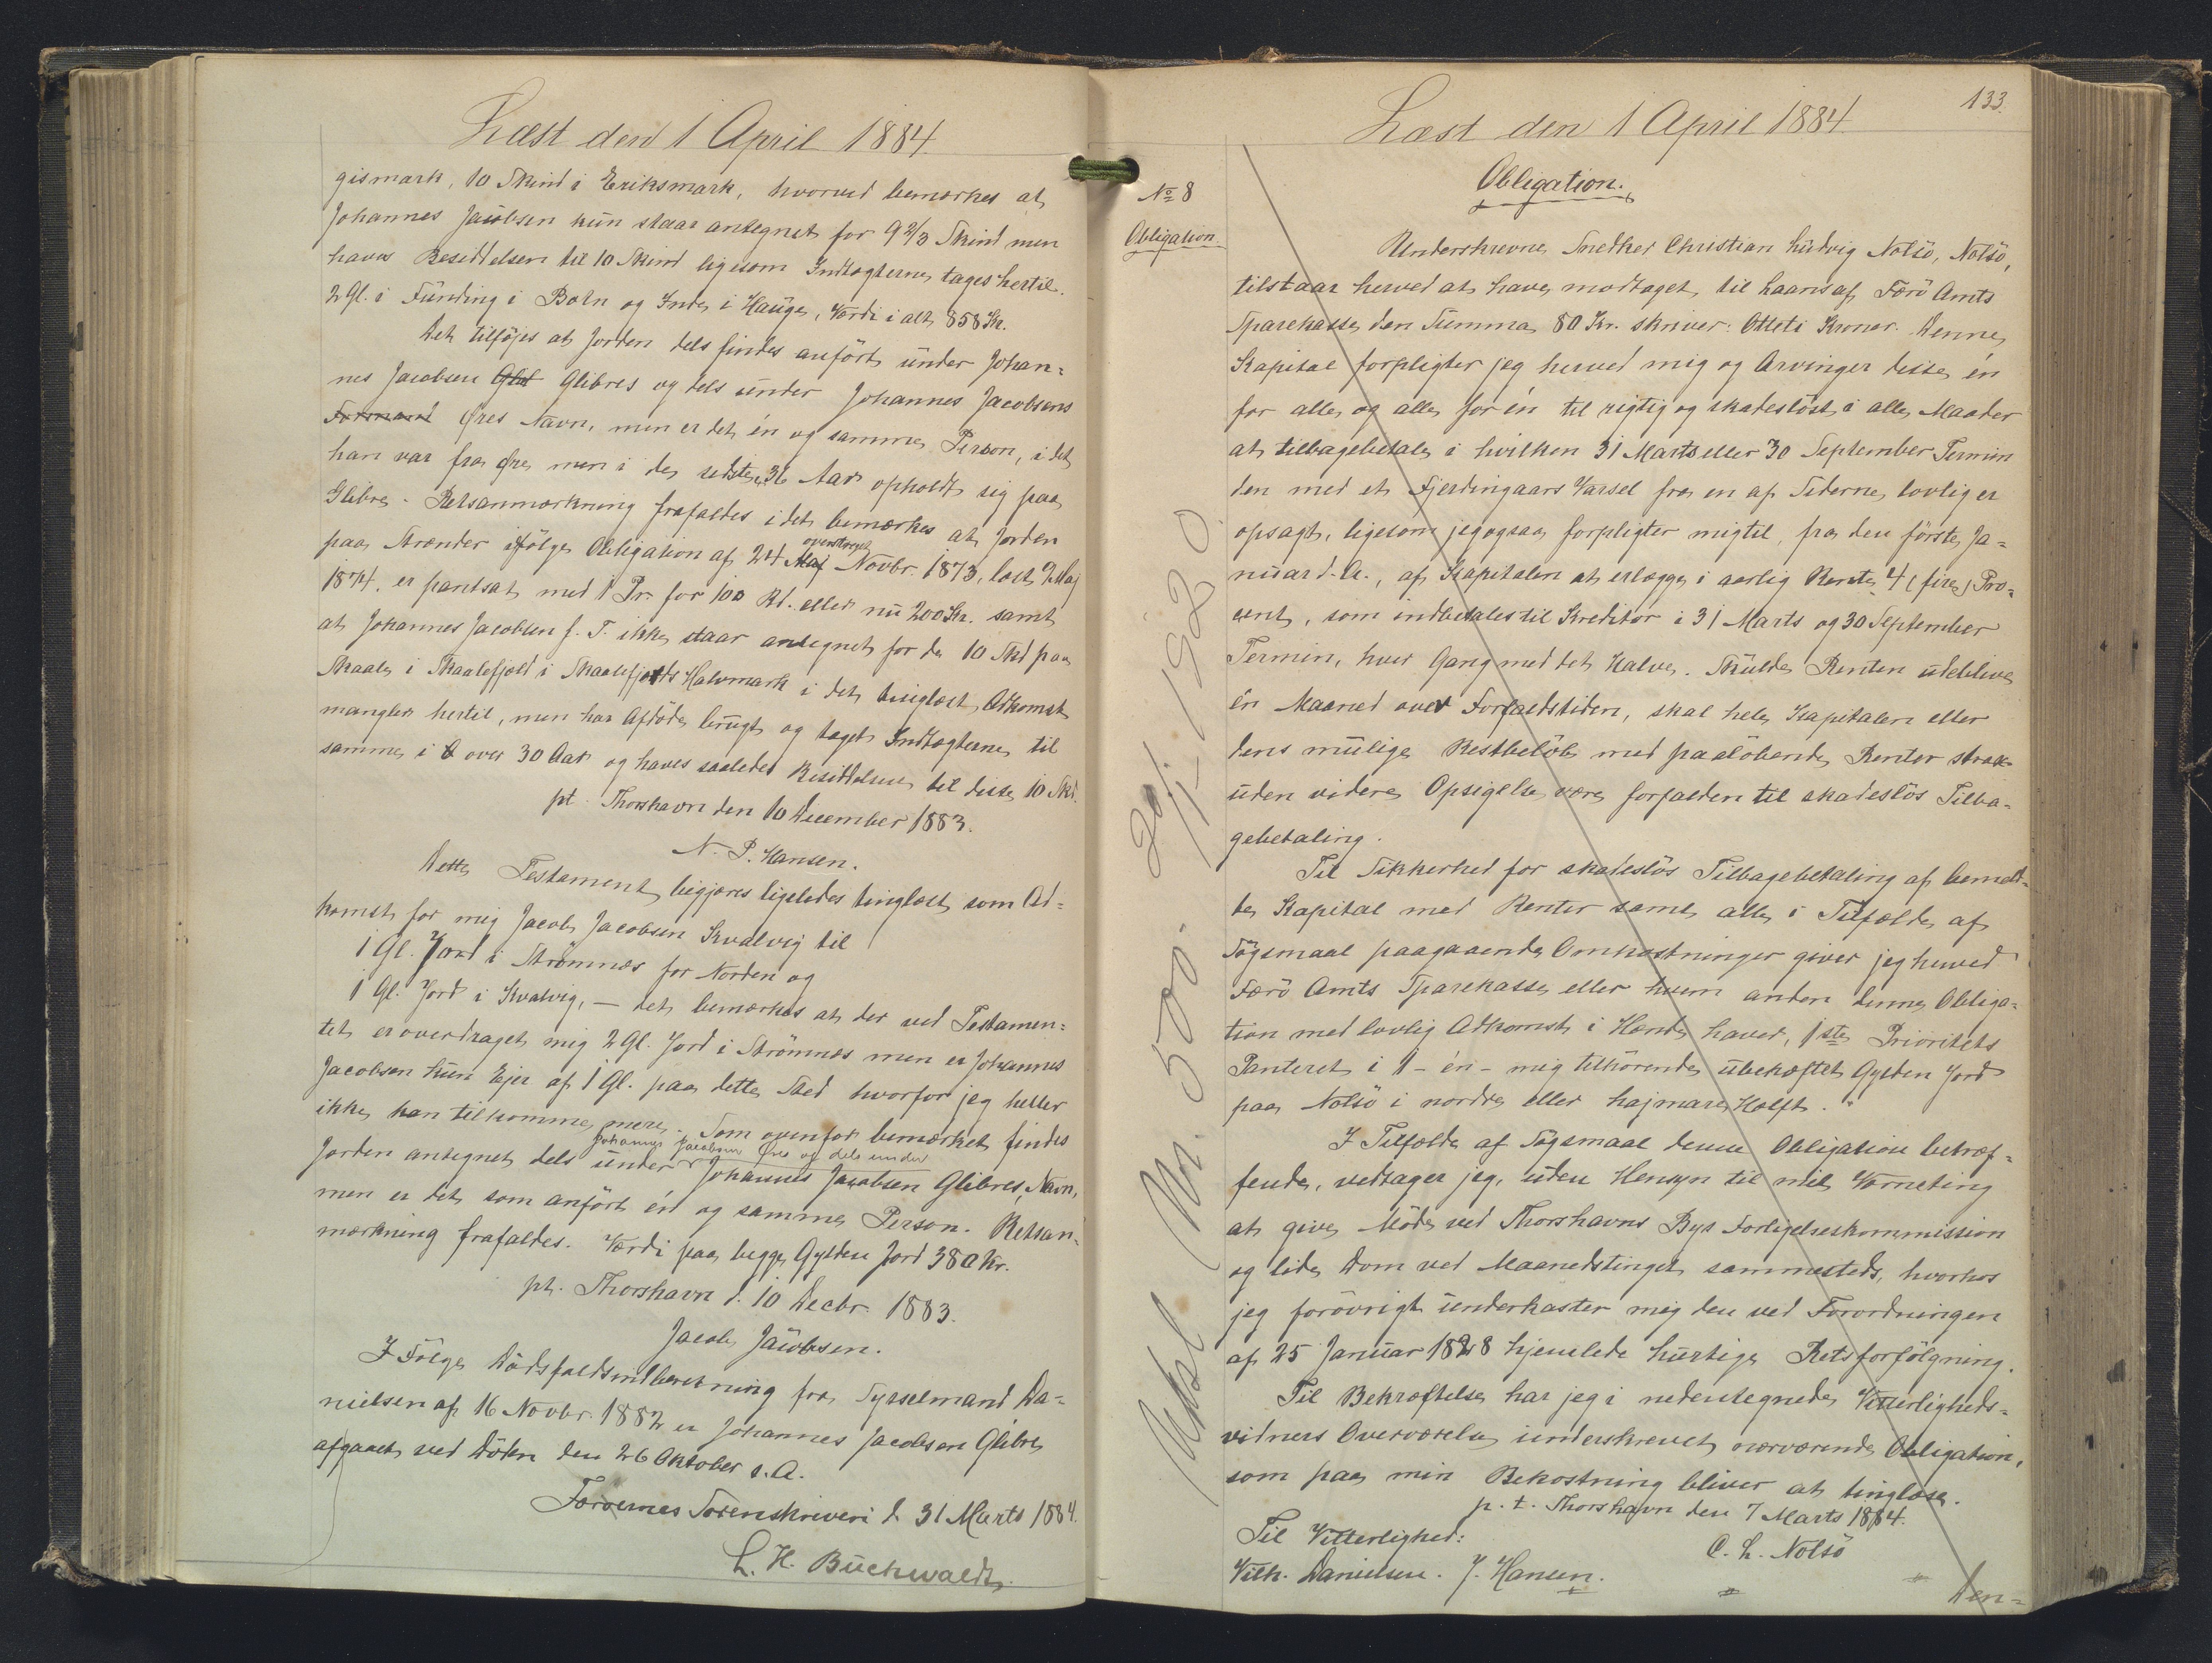 Læst den 1 April 1884.
gismark, 10 Skind i Eriksmark, hvorved bemærkes at
Johannes Jacobsen kun staar antegnet for 9 2/3 Skind men
haves Besiddelsen til 10 Skind ligesom Indtægterne tages hertil.
2 Gl. i Funding i Botn og Inde i Hauge, Værdi i alt 858 Kr.
Det tilföjes at Jorden dels findes anfört under Johan=
nes Jacobsen Glibres og dels under Johannes Jacobsens
Øres Navn, men er det én og samme Person, idet
han var fra Øre men i de sidste 36 Aar opholdt sig paa
Glibre. Retsanmærkning frafaldes idet bemærkes at Jorden
paa Strænder ifölge Obligation af 24 Maj overstreget Novbr. 1873, læst 2 Maj
1874, er pantsat med 1 Pr. for 100 Rd. eller nu 200 Kr. samt
at Johannes Jacobsen f. T. ikke staar antegnet for de 10 Skd paa
Skaale i Skaalefjold i Skaalefjords Halvmark i det tinglæst Adkomst
mangler hertil, men har Afdöde brugt og taget Indtægterne til
samme i over 30 Aar og haves saaledes Besiddelsen til disse 10 Skd.
pt. Thorshavn den 10 December 1883.
N. P. Hansen.
Dette Testament begjæres ligeledes tinglæst som Ad=
komst for mig Jacob Jacobsen Kvalvig til
1 Gl. Jord i Strömnæs for Norden og
1 Gl. Jord i Kvalvig, — det bemærkes at der ved Testamen=
tet er overdraget mig 2 Gl. Jord i Strömnæs men er Johannes
Jacobsen kun Ejer af 1 Gl. paa dette Sted hvorfor jeg heller
ikke kan tilkomme mere. Som ovenfor bemærket findes
Jorden antegnet dels under Johannes Jacobsen Øre og dels under Johannes Jacobsen Glibres Navn,
men er det som anfört én og samme Person. Retsan=
mærkning frafaldes. Værdi paa begge Gylden Jord 380 Kr.
pt. Thorshavn d. 10 Decbr. 1883.
Jacob Jacobsen.
I Fölge Dödsfaldsindberetning fra Sysselmand Da=
nielsen af 16 Novbr. 1882 er Johannes Jacobsen Glibre
afgaaet ved Döden den 26 Oktober s. A.
Færöernes Sorenskriveri d. 31 Marts 1884.
L. H. Buchwaldt.
133.
Læst den 1 April 1884.
№ 8
Obligation
Obligation.
Underskrevne Snedker Christian Ludvig Nolsö, Nolsö,
tilstaar herved at have modtaget til Laans af Færö Amts
Sparekasse den Summa 80 Kr. skriver: Otteti Kroner. Denne
Kapital forpligter jeg herved mig og Arvinger disse én
for alle og alle for én til rigtig og skadeslöst i alle Maader
at tilbagebetale i hvilken 31 Marts eller 30 September Termin
den med et Fjerdingaars Varsel fra en af Siderne lovlig er
opsagt, ligesom jeg ogsaa forpligter mig til, fra den förste Ja=
nuar d. A., af Kapitalen at erlægge i aarlig Rente 4 (fire) Pro=
cent, som indbetales til Kreditor i 31 Marts og 30 September
Termin, hver Gang med det Halve. Skulde Renten udeblive
én Maaned over Forfaldstiden, skal hele Kapitalen eller
dens mulige Restbelöb med paalöbende Renter strax
uden videre Opsigelse være forfalden til skadeslös Tilba=
gebetaling.
Til Sikkerhed for skadeslös Tilbagebetaling af bemeld=
te Kapital med Renter samt alle i Tilfælde af
Sögsmaal paagaaende Omkostninger giver jeg herved
Færö Amts Sparekasse eller hvem anden denne Obliga=
tion med lovlig Adkomst i Hænde haver, 1ste Prioritets
Panteret i 1 - én - mig tilhörende ubehæftet Gylden Jord
paa Nolsö i nordre eller hajmare Hælft.
I Tilfælde af Sögsmaal denne Obligation betræf=
fende, vedtager jeg, uden Hensyn til mit Værneting
at give Möde ved Thorshavns Bys Forligelseskommission
og lide Dom ved Maanedstinget sammesteds, hvorhos
jeg forövrigt underkaster mig den ved Forordningen
af 25 Januar 1828 hjemlede hurtige Retsforfölgning.
Til Bekræftelse har jeg i nedentegnede Vitterligheds=
vidners Overværelse underskrevet nærværende Obligation,
som paa min Bekostning bliver at tinglæse.
p. t. Thorshavn den 7 Marts 1884.
C. L. Nolsö
Til Vitterlighed:
Vilh. Danielsen. J. Hansen.
Den=
Udsl M. 500. 20/11-1920.